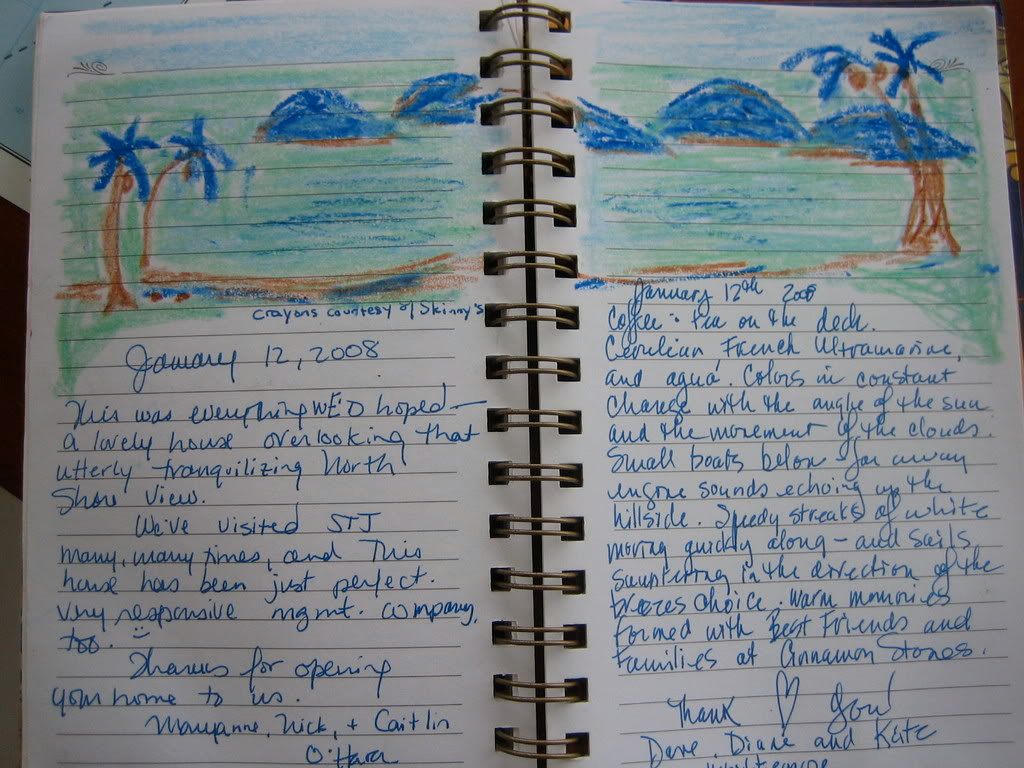 crayons courtesy of Skinny's
January 12, 2008
This was everything WE'D hoped—
a lovely house overlooking that
utterly tranquilizing North
Shore View.
We've visited STJ
many, many times, and This
house has been just perfect.
very responsive mgmt. company,
too. :)
Thanks for opening
your home to us.
Maryanne, Nick, + Caitlin
O'Hara
January 12th 2008
Coffee & tea on the deck.
Cerulian French Ultramarine,
and aqua. Colors in constant
change with the angle of the sun
and the movement of the clouds.
Small boats below - far away
engine sounds echoing up the
hillside. Speedy streaks of white
moving quickly along - and sails
sauntering in the direction of the
breezes choice. Warm memories
formed with Best Friends and
Families at Cinnamon Stones.
Thank ♡ You!
Dave, Diane and Kate